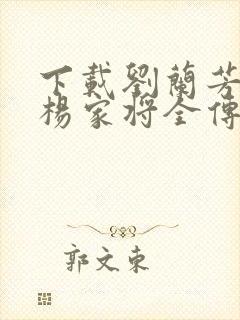 下載劉蘭芳
楊家將全傳
郭文東